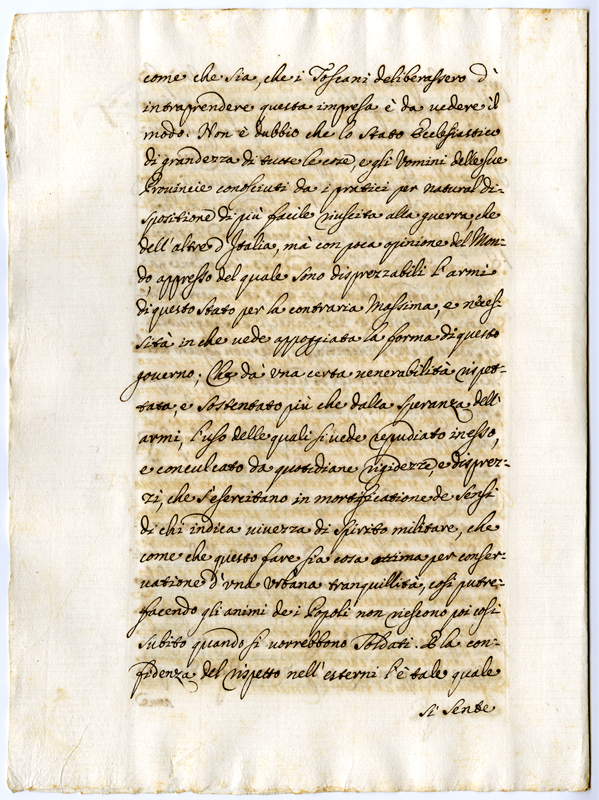 come che sia, che i Toscani deliberassero d'
intraprendere questa impresa è da vedere il
modo. Non è dubbio che lo Stato Ecclesiastico
di grandezza di tutte le cose, e gli Vomini delle sue
Provincie conosciuti da i pratici per natural di-
spositione di più facile riuscita alla guerra, che
dell'altre d'Italia, mà con poca opinione del Mon-
do, appresso del quale sono disprezzabili l'armi
di questo stato per la contraria Massima, e neces-
sità in che vede appoggiata la forma di questo
governo; Che dà vna certa venerabilità rispet-
tata, e sostentato più che dalla speranza dell'
armi, l'uso delle quali si vede repudiato in esso,
e conculcato da quotidiane rigidezze, e disprez-
zi, che s'esercitano in mortificatione de sensi
di chi indica vivezza di spirito militare, che
come che questo fare sia cosa ottima per conser-
vatione d'vna Vrbana tranquillità, così putre-
facendo gli animi de i Popoli non riescono poi così
subito quando si vorrebbono Soldati. E la con-
fidenza del rispetto nell'esterni l'è tale quale
si sente